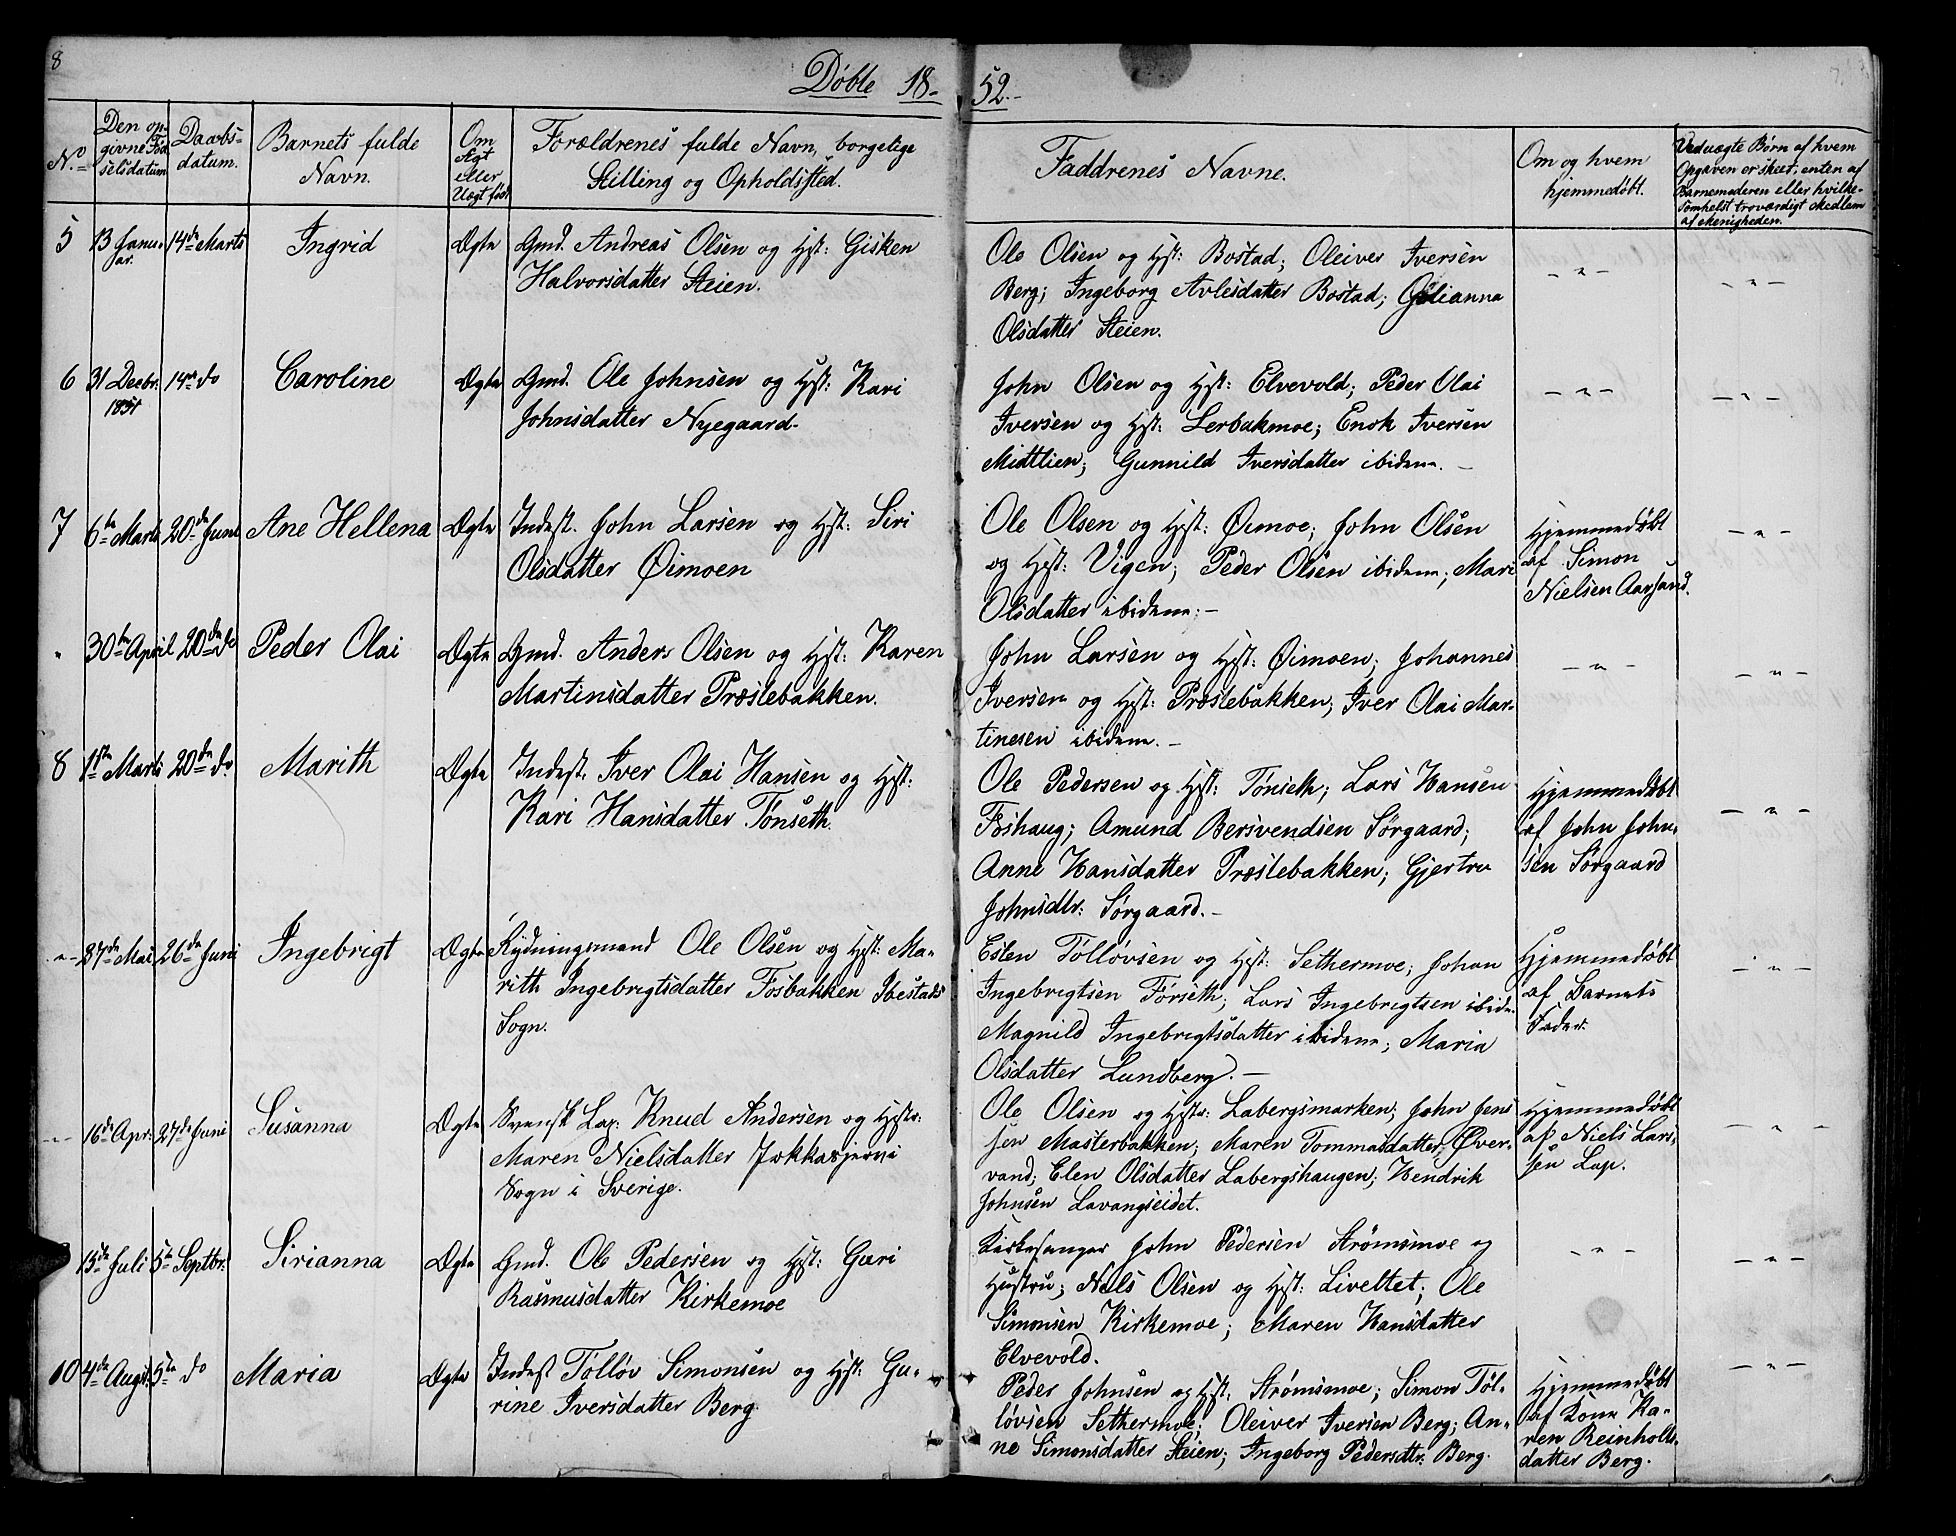 8
Døbte 18-52.-
No
Den op-
givne Fød-
selsdatum
Daabs-
datum.
Barnets fulde
Navn.
Om
Ægt
eller
Uægt født
Forældrenes fulde Navn, borgelige
Stilling og Opholdssted.
Faddrenes Navne.
Om og hvem
hjemmedøbt.
Ved uægte Børn af hvem
Opgaven er skeet, enten af
Barnemoderen eller hvilke-
somhelst troværdigt Medlem
af Menigheden.
5 13 Janu- 14de Marts Ingrid Ægte Gmd. Andreas Olsen og Hst: Gisken
ar.
Halvorsdatter Steien.
Ole Olsen og Hst: Bostad; Oleiver Iversen
Berg; Ingeborg Avlesdatter Bostad;
Olsdatter Steien.
- " -
- " -
6 31 Decbr. 14de do Caroline Ægte Gmd. Ole Johnsen og Hst: Kari
1851
Johnsdatter Nyegaard-
John Olsen og Hst: Elvevold; Peder Olai
Iversen og Hst: Lerbakmoe; Enok Iversen
Midtlien; Gunnild Iversdatter ibidem. -
- " -
- " -
7 6te Marts 20de Juni Ane Hellena Ægte Inderst. John Larsen og Hst: Siri
Olsdatter Øimoen
Ole Olsen og Hst: Øimoe; John Olsen
og Hst: Vigen; Peder Olsen ibidem; Mari
Olsdatter ibidem; -
Hjemmedøbt
af Simon
Nielsen Aarsand.
- " -
" 30te April 20de do Peder Olai Ægte Gmd. Anders Olsen og Hst: Karen
Martinsdatter Præstebakken.
John Larsen og Hst: Øimoen; Johannes
Iversen og Hst: Præstebakken; Iver Olai Mar-
tinesen ibidem. -
- " -
- " -
8 1ste Marts 20de do Marith Ægte Inderst. Iver Olai Hansen og Hst:
Kari Hansdatter Tønseth.
Ole Pedersen og Hst: Tønseth; Lars Hansen
Foshaug; Amund Bersvendsen Sørgaard;
Anne Hansdatter Præstebakken; Gjertru
Johnsdtr: Sørgaard. -
Hjemmedøbt
af John John-
sen Sørgaard
- " -
- " - 27de Mai 26de Juni Ingebrigt Ægte Rydningsmand Ole Olsen og Hst: Ma-
rith Ingebrigtsdatter Fosbakken Ibestads
Sogn.
Esten Tølløvsen og Hst: Sethermoe; Johan
Ingebrigtsen Førseth; Lars Ingebrigtsen ibidm
Magnild Ingebrigtsdatter ibidem; Maria
Olsdatter Lundberg. -
Hjemmedøbt
af Barnets
Fader.
- " -
- " - 16de Apr: 27de Juni Susanna Ægte Svensk Lap. Knud Andersen og Hstr:
Maren Nielsdatter Jukkasjervi
Sogn i Sverige.
Ole Olsen og Hstr: Labergsmarken; John Jens
sen Masterbakken; Maren Tommasdatter Øver-
vand; Elen Olsdatter Labergshaugen; Hendrik
Johnsen Lavangseidet.
Hjemmedøbt
af Niels Lars-
sen Lap.
- " -
15de Juli 5te Septbr: Sirianna Ægte Gmd. Ole Pedersen og Hst: Guri
Rasmusdatter Kirkemoe
Kirkesanger John Pedersen Strømsmoe og
Hustru; Nils Olsen og Hst: Liveltet; Ole
Simonsen Kirkemoe; Maren Hansdatter
Elvevold.
- " -
- " -
10 4de Augs. 5te do Maria Ægte Inderst Tølløv Simonsen og Hst: Gu-
rine Iversdatter Berg.
Peder Johnsen og Hst: Strømsmoe; Simon Tøl-
løvsen Sethermoe; Oleiver Iversen Berg; An-
ne Simonsdatter Steien; Ingeborg Pedersdtr. Berg.
Hjemmedøbt
af Kone Ka-
ren Reinholts-
datter Berg.
- " -